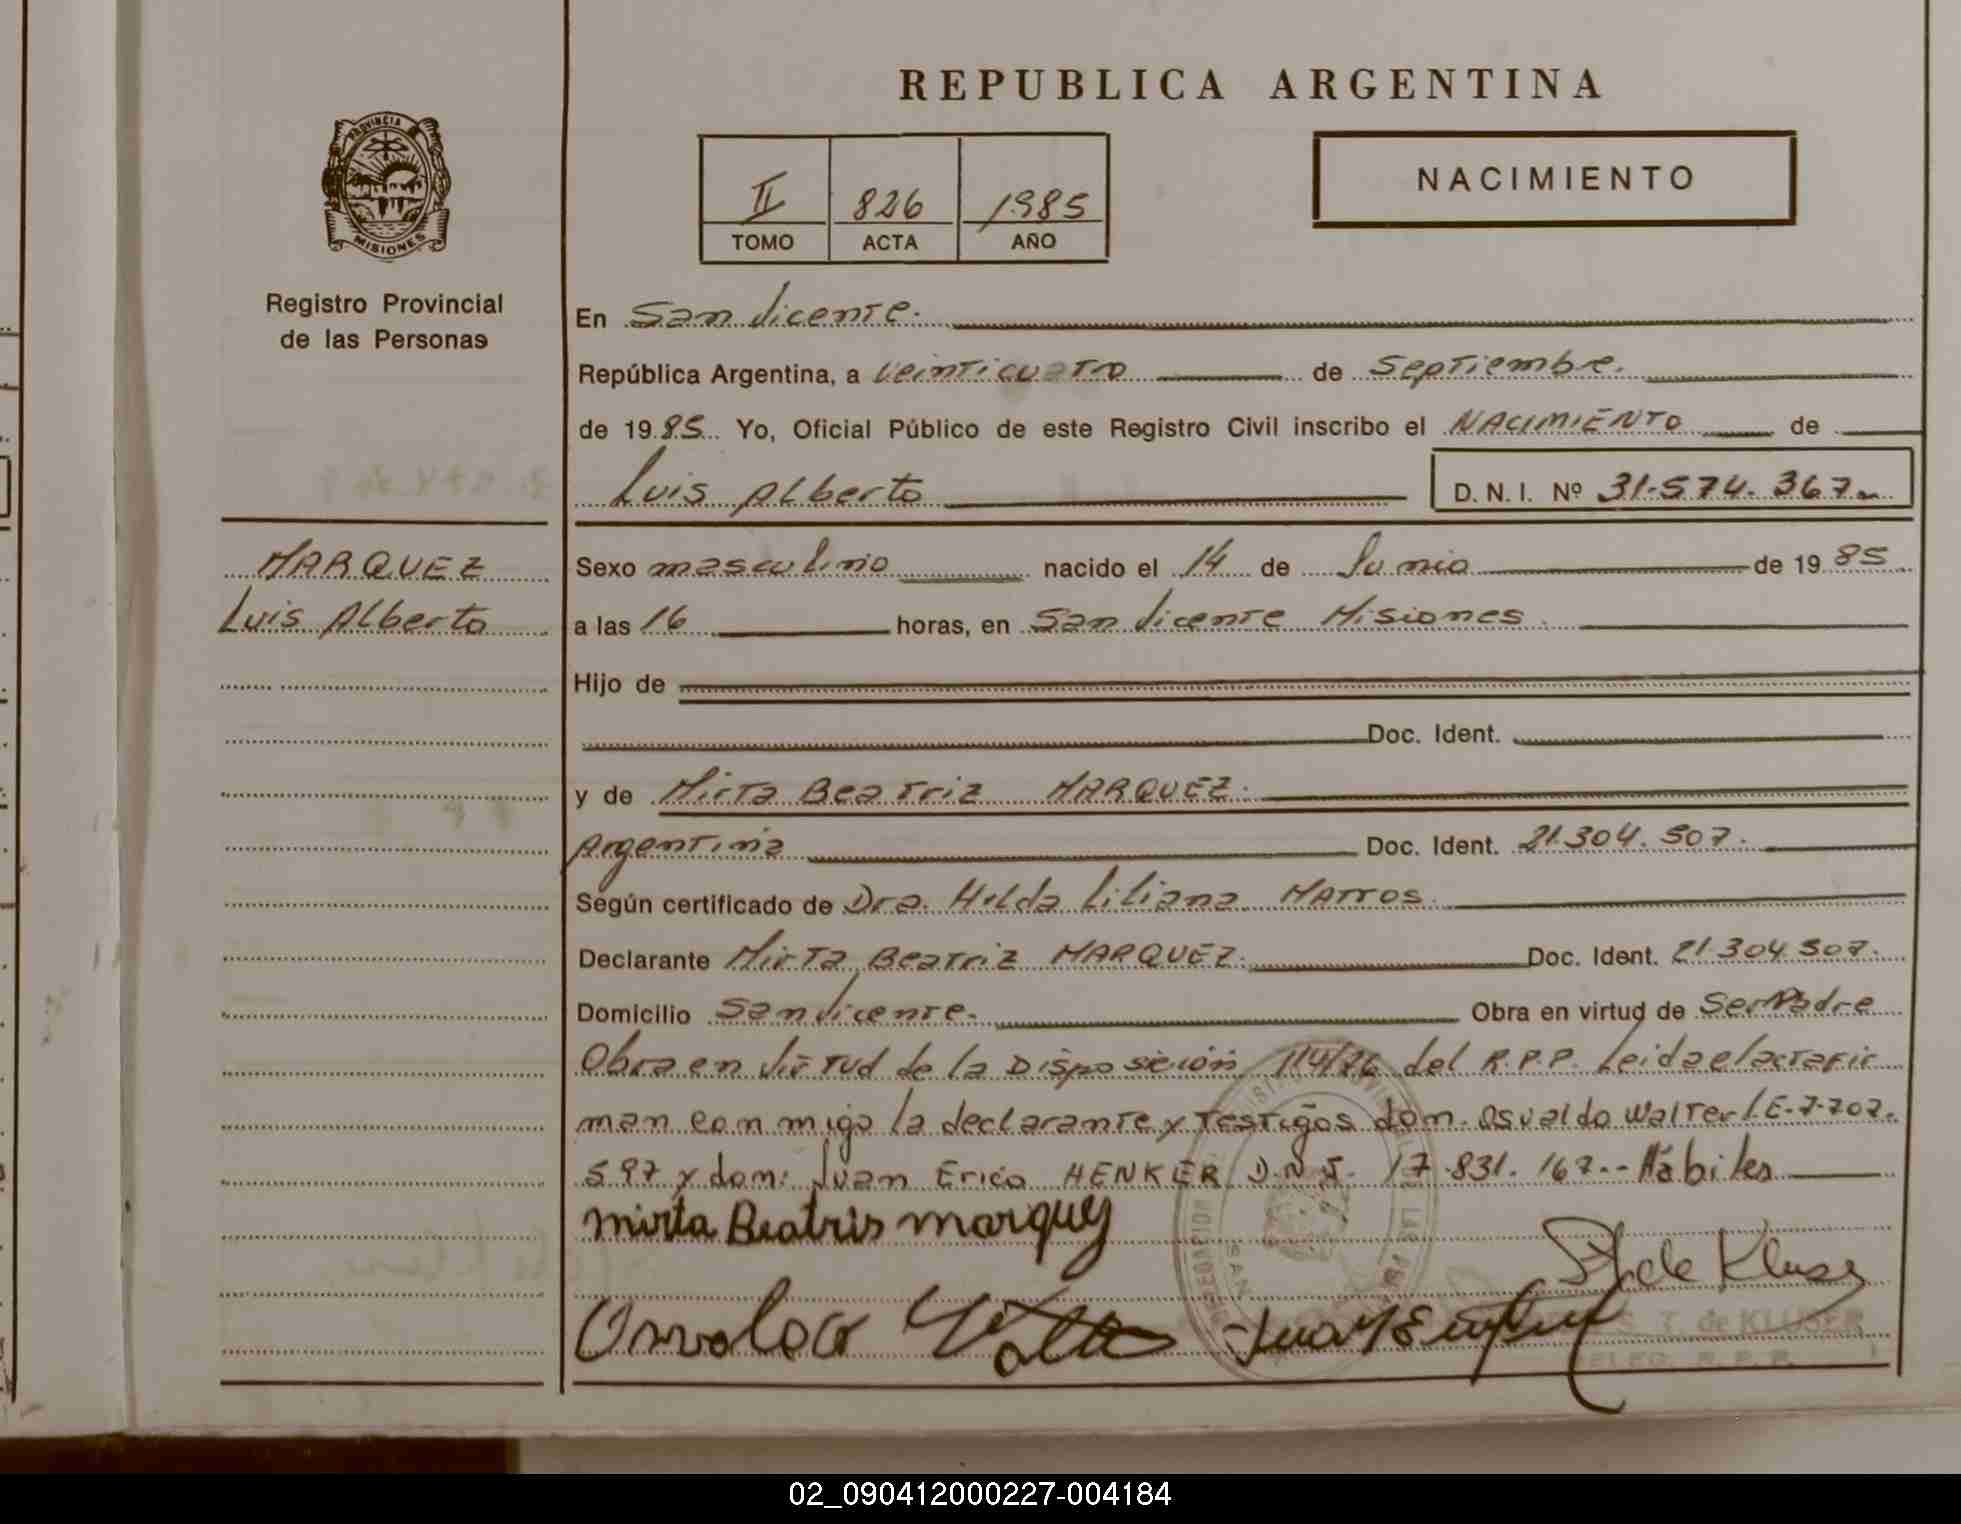 REPUBLICA ARGENTINA
PROVINCIA
MISIONES
Registro Provincial
de las Personas
II 826 1985
TOMO ACTA AÑO
NACIMIENTO
En San Vicente.
República Argentina, a veinticuatro de Septiembre.
de 1985 Yo, Oficial Público de este Registro Civil inscribo el NACIMIENTO de
Luis Alberto D.N.I. Nº 31.574.367
MARQUEZ
Luis Alberto
Sexo masculino nacido el 14 de Junio de 1985
a las 16 horas, en San Vicente Misiones.
Hijo de
Doc. Ident.
y de Mirta Beatriz MARQUEZ.
Argentina Doc. Ident. 21.304.507.
Según certificado de Dra. Hilda Liliana MATTOS.
Declarante Mirta Beatriz MARQUEZ. Doc. Ident. 21.304.507.
Domicilio San Vicente. Obra en virtud de Ser Padre
Obra en virtud de la Disposición 114/76 del R.P.P. Leida el acta fir
man conmigo la declarante y testigos don. Osvaldo Walter L.E-7-707.
597 y don: Juan Erico HENKER D.N.I. 17.831.167.- Hábiles
mirta Beatris marquez
Osvaldo Walter
S T de Kluser
S. T. de KLUSER
DELEG. R. P. P.
02_090412000227-004184